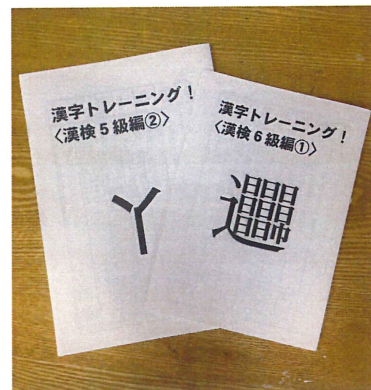 漢字トレーニング!
〈漢検5級編②〉
丫
漢字トレーニング!
〈漢検6級編①〉